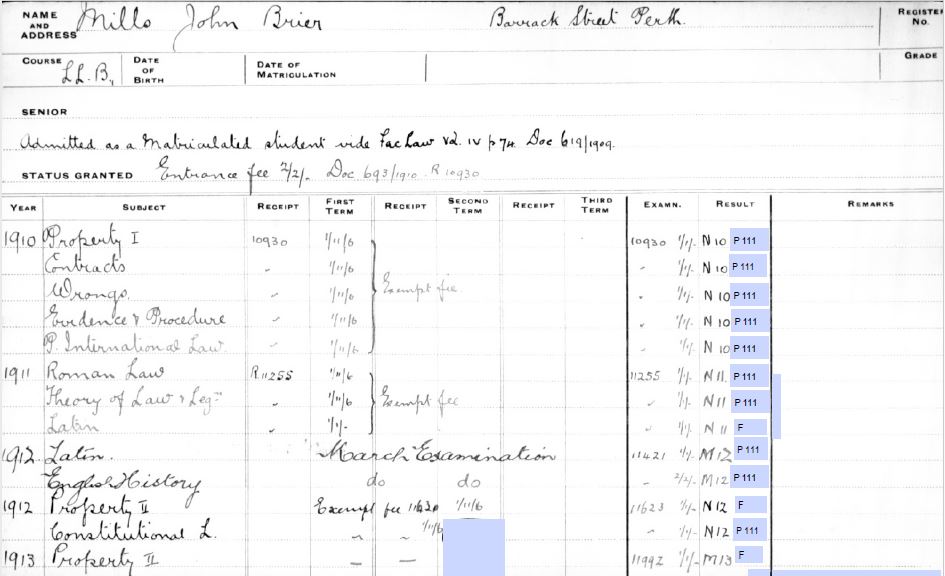 NAME AND ADDRESS Mills John Brier Barrack Street Perth. REGISTE No.
COURSE LL.B., DATE OF BIRTH DATE OF MATRICULATION GRADE
SENIOR
Admitted as a Matriculated student vide Fac Law Vol. IV p 74. Doc 619/1909.
STATUS GRANTED Entrance fee 2/2/. Doc 693/1910 R 10930
YEAR SUBJECT RECEIPT FIRST TERM RECEIPT SECOND TERM RECEIPT THIRD TERM EXAMN. RESULT REMARKS
1910 Property I 10930 1/11/6 10930 1/1/- N 10 P 111
Contracts " 1/11/6 " 1/1/- N 10 P 111
Wrongs. " 1/11/6 Exempt fee " 1/1/- N 10 P 111
Evidence & Procedure " 1/11/6 " 1/1/- N 10 P 111
P. International Law. " 1/11/6 " 1/1/- N 10 P 111
1911 Roman Law R 11255 1/11/6 11255 1/1/- N 11. P 111
Theory of Law & Leg:- " 1/11/6 Exempt fee " 1/1/- N 11 P 111
Latin " 1/1/- " 1/1/- N 11 F
1912 Latin. March Examination 11421 1/1/- M 12 P 111
English History do do – 2/2/- M 12 P 111
1912 Property II Exempt fee 11620 1/11/6 11623 1/1/- N 12 F
Constitutional L. " " 1/11/6 " 1/1/- N 12 P 111
1913 Property II – – 11992 1/1/- M 13 F